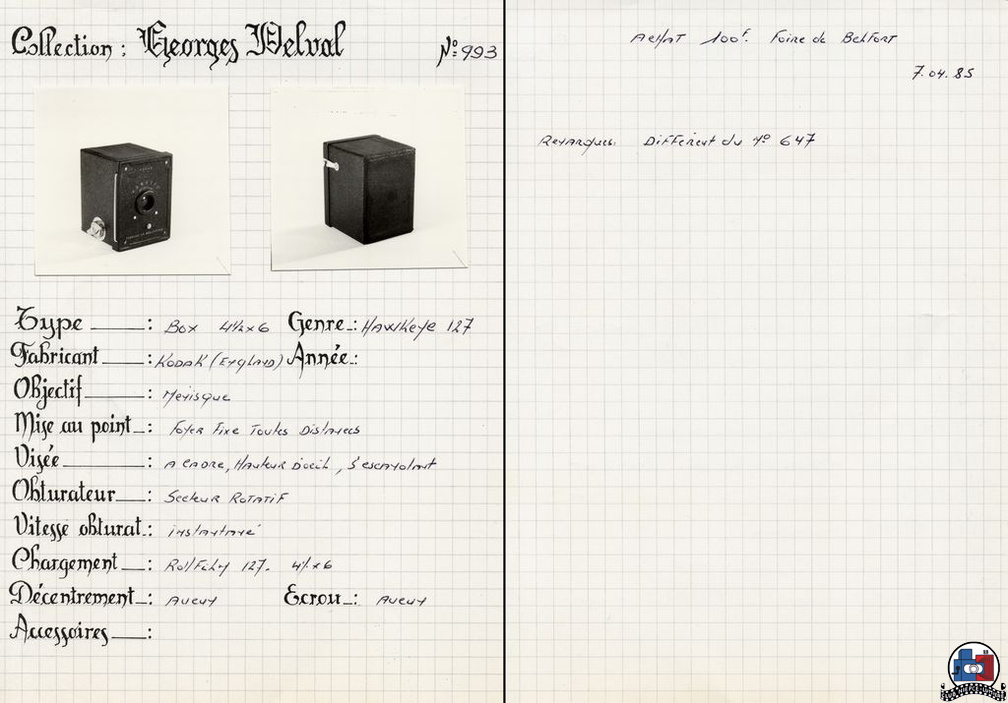 Collection : Georges Delval
N°: 993
Type : Box 4½x6 Genre : Hawkeye 127
Fabricant : Kodak (England) Année :
Objectif : Ménisque
Mise au point : Foyer Fixe Toutes Distances
Visée : A cadre, Hauteur D'oeil, s'escamotant
Obturateur : Secteur Rotatif
Vitesse obturat. : instantané
Chargement : Rollfilm 127. 4½x6
Décentrement : Aucun Ecrou : Aucun
Accessoires :
Achat 100F. Foire de Belfort
7.04.85
Remarques: Différent du N° 647